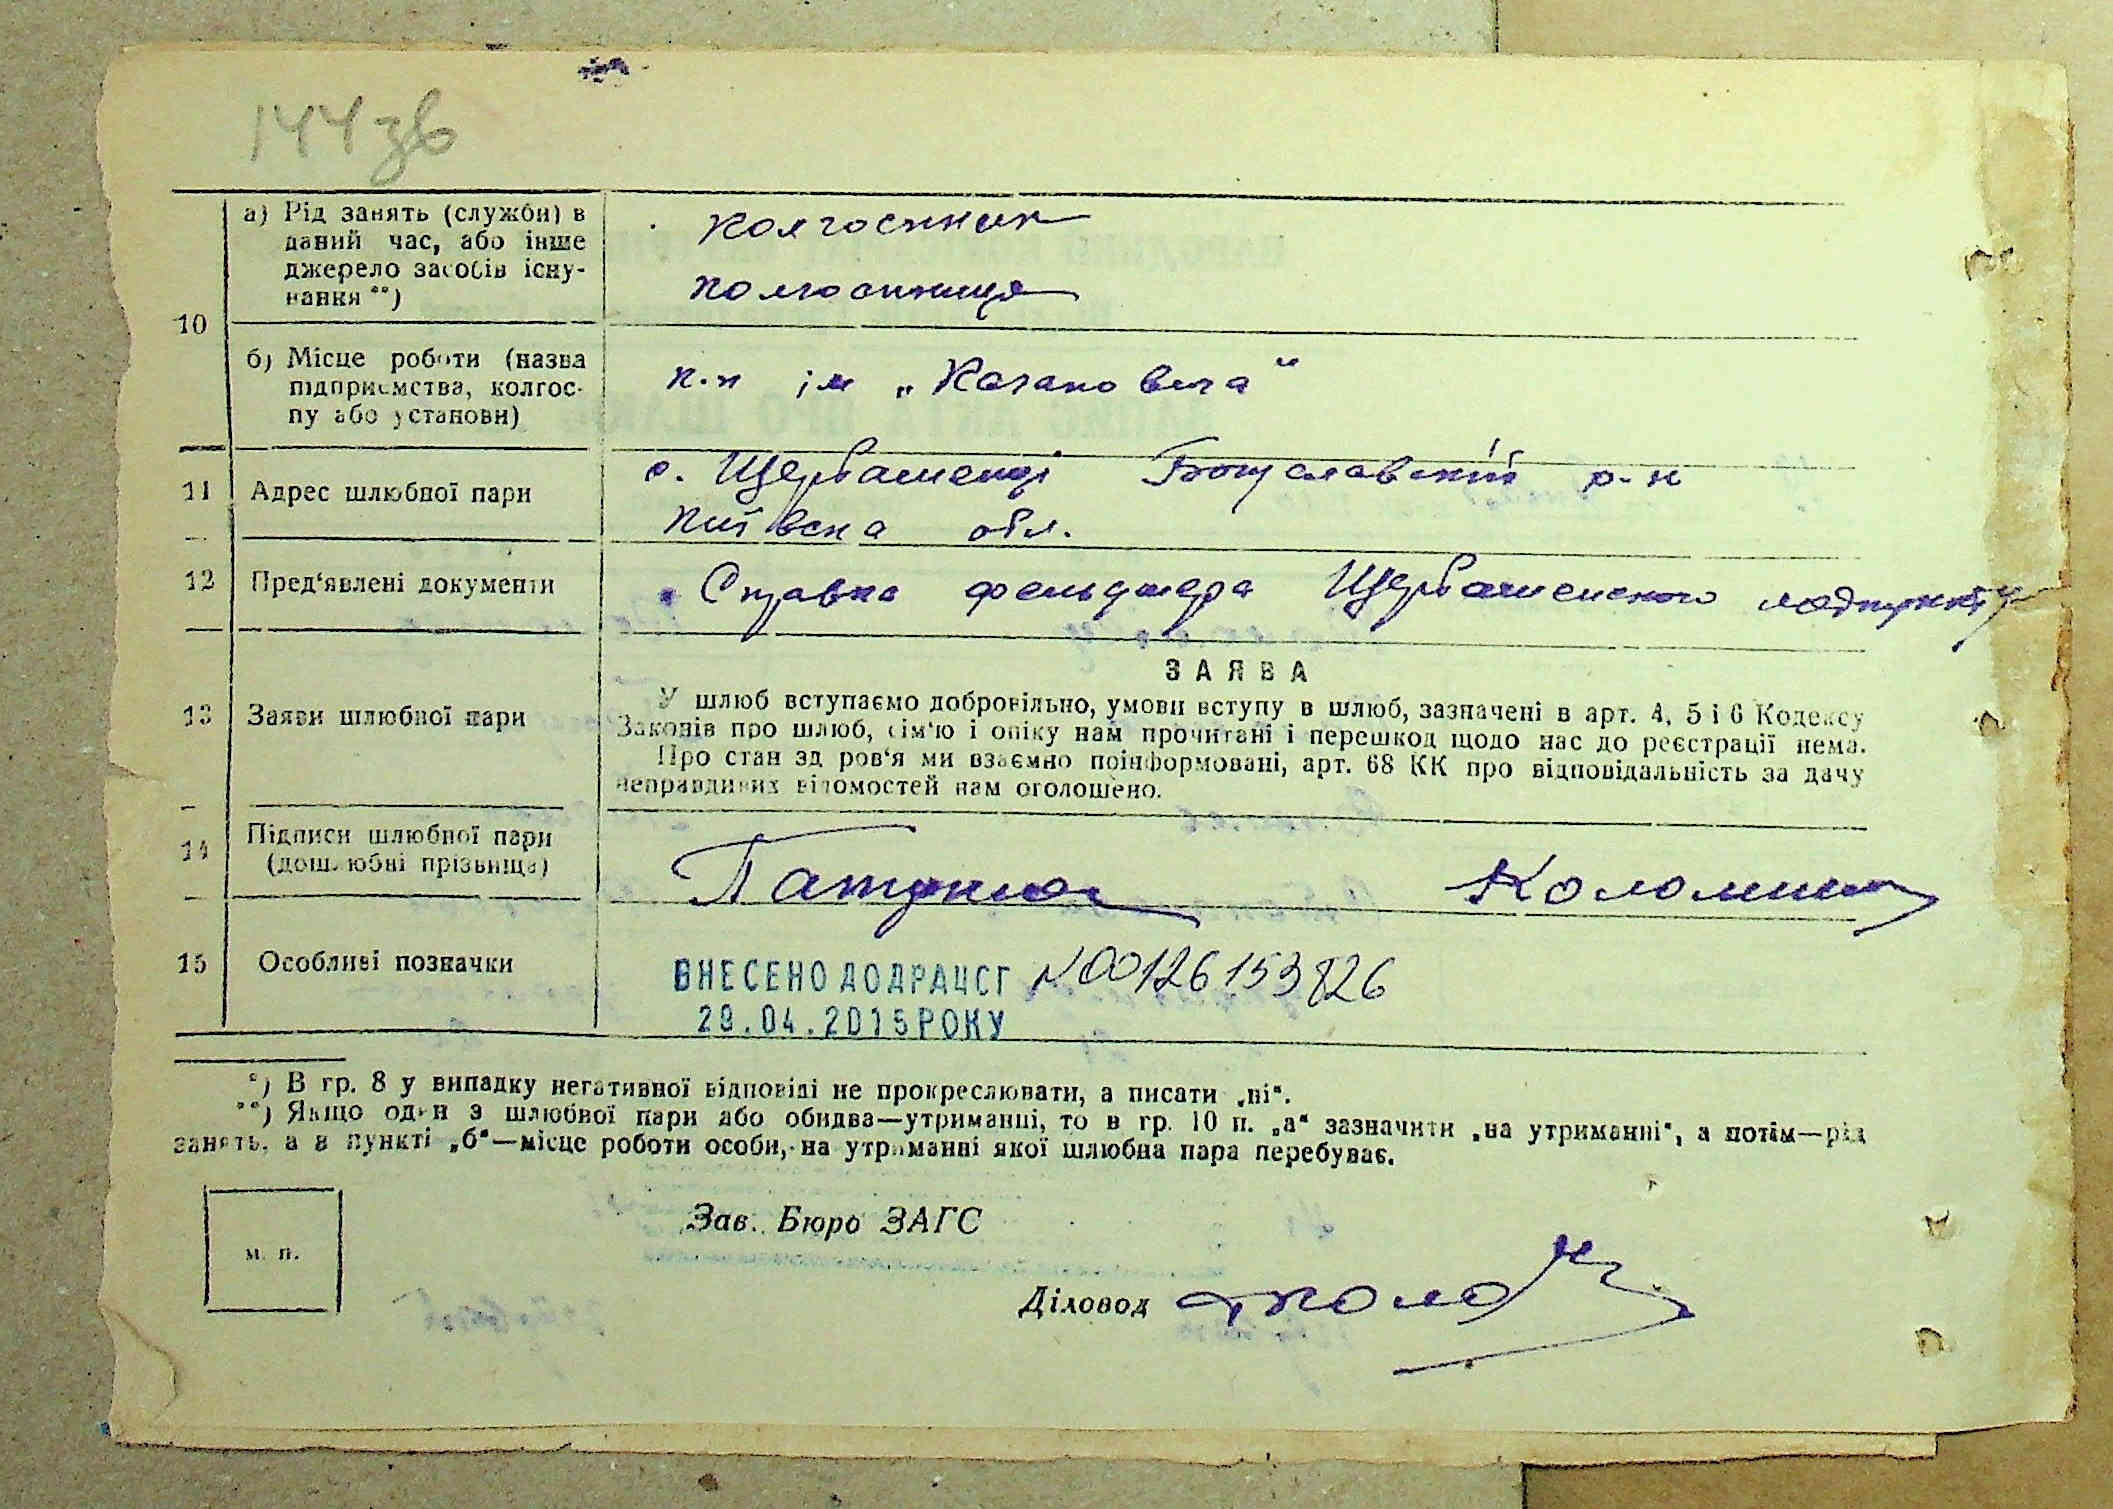 144зв
10
а) Рід занять (служби) в
даний час, або інше
джерело засобів існу-
вання **)
колгоспник
колгоспниця
б) Місце роботи (назва
підприємства, колгос-
пу або установи)
к-п ім „Кагановича"
11 Адрес шлюбної пари
с. Щербашенці Богуславский р-н
Київска обл.
12 Пред'явлені документи
Справка фельдшера Щербашенского медпункту
ЗАЯВА
13 Заяви шлюбної пари
У шлюб вступаємо добровільно, умови вступу в шлюб, зазначені в арт. 4, 5 і 6 Кодексу
Законів про шлюб, сім'ю і опіку нам прочитані і перешкод щодо нас до реєстрації нема.
Про стан здоров'я ми взаємно поінформовані, арт. 68 КК про відповідальність за дачу
неправдивих відомостей нам оголошено.
14 Підписи шлюбної пари
(дошлюбні прізвища)
15 Особливі позначки
ВНЕСЕНО ДО ДРАЦСГ N 00126153826
29.04.2015 РОКУ
*) В гр. 8 у випадку негативної відповіді не прокреслювати, а писати „ні".
**) Якщо один з шлюбної пари або обидва—утриманці, то в гр. 10 п. „а" зазначити „на утриманні", а потім—рід
занять, а в пункті „б"—місце роботи особи, на утриманні якої шлюбна пара перебуває.
м. п.
Зав. Бюро ЗАГС
Діловод